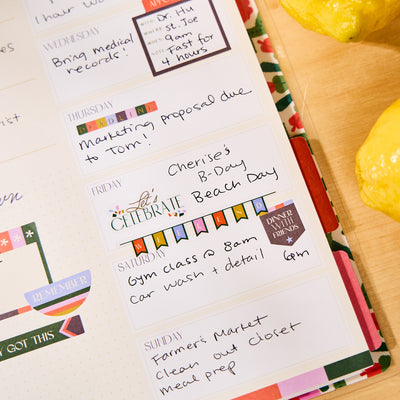 1 hour w
APPOINT
WITH: Dr. Hu
WHERE: St. Joe
WHEN: 9am
NOTES: Fast for
4 hours
WEDNESDAY
Bring medical
records!
THURSDAY
DEADLINE
Marketing proposal due
to Tom!
FRIDAY
Cherise's
B-Day
Beach Day
Let's
CELEBRATE
WEEKEND
DINNER
WITH
FRIENDS
SATURDAY
6pm
Gym class @ 8am
Car wash + detail
SUNDAY
Farmer's Market
Clean out closet
meal prep
REMEMBER
GOT THIS